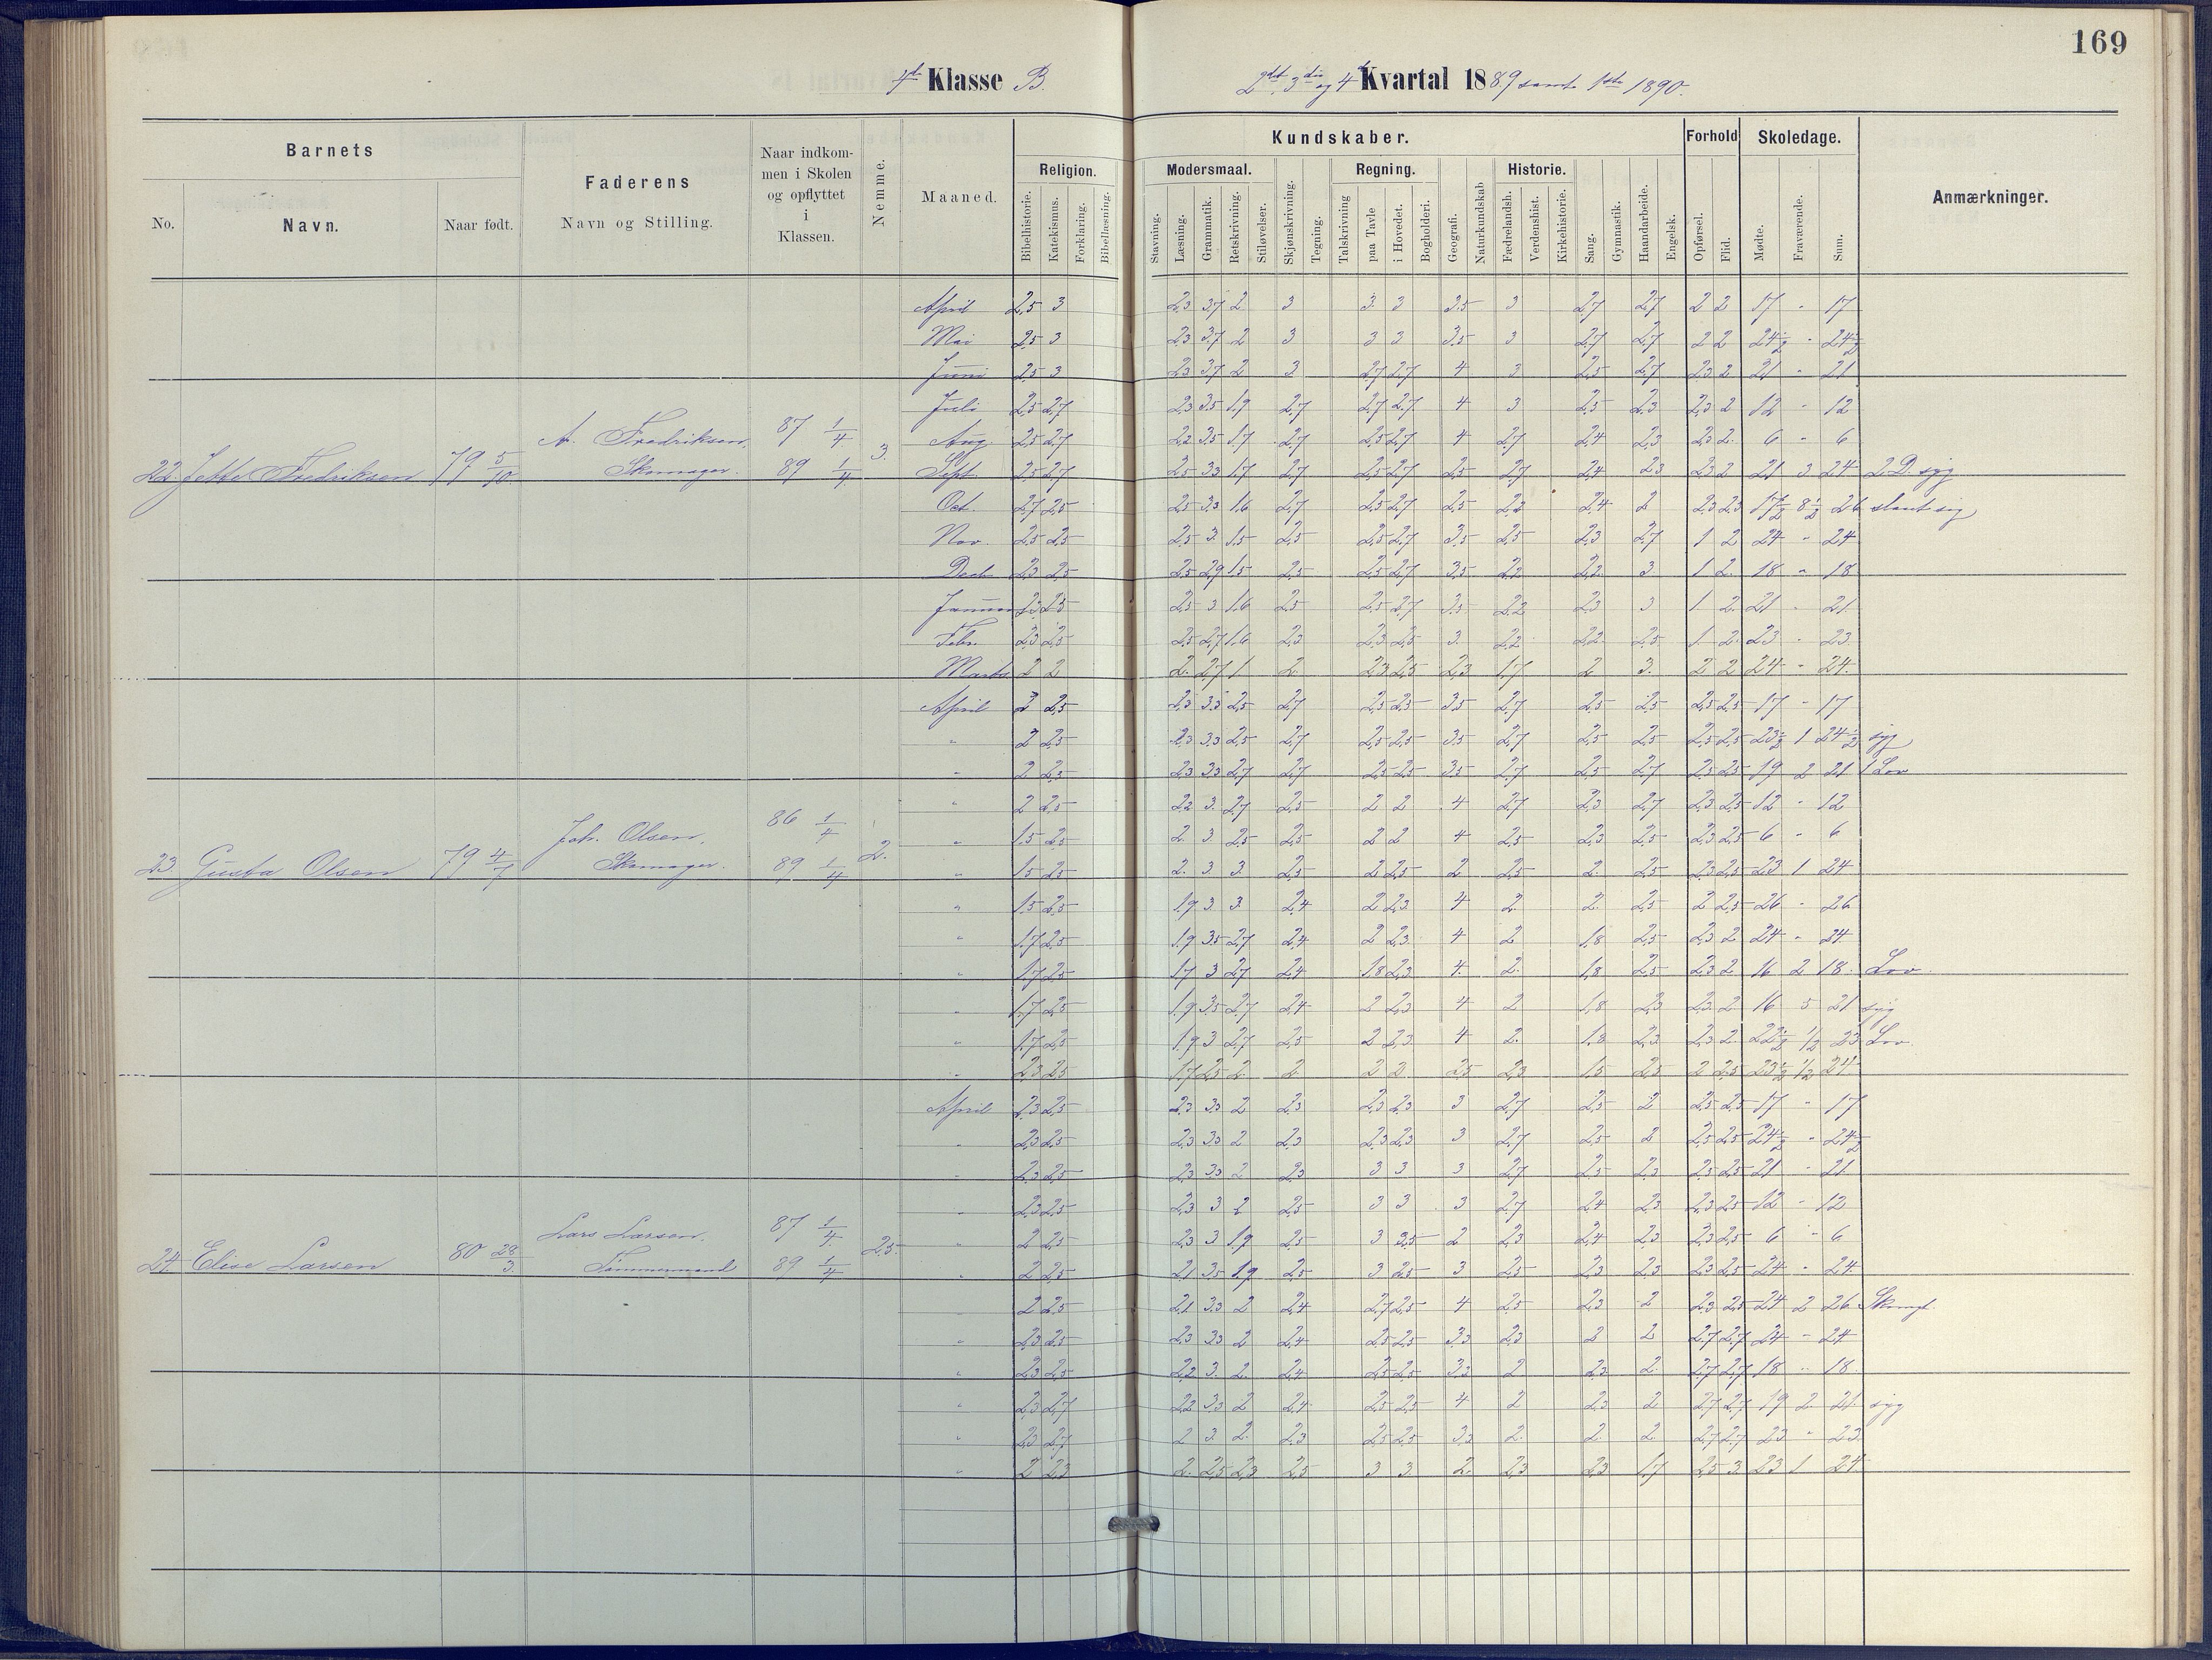 169
4de Klasse B. 2det 3die og 4de Kvartal 1889 samt 1ste 1890.
Barnets
No.
Navn.
Naar født.
Faderens
Navn og Stilling.
Naar indkommen i Skolen og opflyttet i Klassen.
Nemme.
Maaned.
Kundskaber.
Religion.
Bibelhistorie. Katekismus. Forklaring. Bibellæsning.
Modersmaal.
Stavning. Læsning. Grammatik. Retskrivning. Stiløvelser.
Skjønskrivning. Tegning.
Regning.
Talskrivning paa Tavle i Hovedet. Bogholderi.
Geografi. Naturkundskab
Historie.
Fædrelandsh. Verdenshist. Kirkehistorie.
Sang. Gymnastik. Haandarbeide. Engelsk.
Forhold
Opførsel. Flid.
Skoledage.
Mødte. Fraværende. Sum.
Anmærkninger.
22. Jette Fredriksen 79 5/10 A. Fredriksen, Skomager. 87 1/4 89 1/4 3.
April 2,5 3 2,3 3,7 2 3 3 3 3,5 3 2,7 2,7 2 2 17 - 17
Mai 2,5 3 2,3 3,7 2 3 3 3 3,5 3 2,7 2,7 2 2 24½ - 24½
Juni 2,5 3 2,3 3,7 2 3 2,7 2,7 4 3 2,5 2,7 2,3 2 21 - 21
Juli 2,5 2,7 2,3 3,5 1,9 2,7 2,7 2,7 4 3 2,5 2,3 2,3 2 12 - 12
Aug. 2,5 2,7 2,2 3,5 1,7 2,7 2,5 2,7 4 2,7 2,4 2,3 2,3 2 6 - 6
Sept 2,5 2,7 2,5 3,3 1,7 2,7 2,5 2,7 2,5 2,7 2,4 2,3 2,3 2 21 3 24 2 D. syg
Oct. 2,7 2,5 2,5 3,3 1,6 2,7 2,5 2,7 2,5 2,3 2,4 2 2,3 2,3 17½ 8½ 26
Nov. 2,5 2,5 2,5 3 1,5 2,5 2,5 2,7 3,5 2,5 2,3 2,7 1 2 24 - 24
Decb 2,3 2,5 2,5 2,9 1,5 2,5 2,5 2,7 3,5 2,2 2,2 3 1 2 18 - 18
Januar 2,3 2,5 2,5 3 1,6 2,5 2,5 2,7 3,5 2,2 2,3 3 1 2 21 - 21
Febr. 2,3 2,5 2,5 2,7 1,6 2,3 2,3 2,5 3 2,2 2,2 2,5 1 2 23 - 23
Marts 2 2 2 2,7 1 2 2,3 2,5 2,3 1,7 2 3 2 2 24 - 24
23 Gusta Olsen 79 4/7 Joh. Olsen, Skomager. 86 1/4 89 1/4 2.
April 2 2,5 2,3 3,3 2,5 2,7 2,5 2,5 3,5 2,7 2,5 2,5 2,5 2,5 17 - 17
" 2 2,5 2,3 3,3 2,5 2,7 2,5 2,5 3,5 2,7 2,5 2,5 2,5 2,5 23½ 1 24½ syg
" 2 2,5 2,3 3,3 2,7 2,7 2,5 2,5 3,5 2,7 2,5 2,7 2,5 2,5 19 2 21 1 Lov
" 2 2,5 2,2 3 2,7 2,5 2 2 4 2,7 2,3 2,7 2,3 2,5 12 - 12
" 1,5 2,5 2 3 2,5 2,5 2 2 4 2,5 2,3 2,5 2,3 2,5 6 - 6
" 1,5 2,5 2 3 3 2,5 2 2,5 2 2,5 2 2,5 2,3 2,5 23 1 24
" 1,5 2,5 1,9 3 3 2,4 2 2,3 4 2 2 2,5 2 2,5 26 - 26
" 1,7 2,5 1,9 3,5 2,7 2,4 2 2,3 4 2 1,8 2,5 2,3 2 24 - 24
" 1,7 2,5 1,7 3 2,7 2,4 1,8 2,3 4 2 1,8 2,5 2,3 2 16 2 18 Lov.
" 1,7 2,5 1,9 3,5 2,7 2,4 2 2,3 4 2 1,8 2,3 2,3 2 16 5 21 syg
" 1,7 2,5 1,9 3 2,7 2,5 2 2,3 4 2 1,8 2,3 2,3 2 22½ ½ 23 Lov.
" 2,3 2,5 1,7 2,5 2 2 2 2 2,5 2,3 1,5 2,5 2 2,5 23½ ½ 24
24. Elise Larsen 80 28/3 Lars Larsen, Tømmermand 87 1/4 89 1/4 2,5.
April 2,3 2,5 2,3 3,3 2 2,3 2,3 2,3 3 2,7 2,5 2 2,5 2,5 17 - 17
" 2,3 2,5 2,3 3,3 2 2,3 2,3 2,3 3 2,7 2,5 2 2,5 2,5 24½ - 24½
" 2,3 2,5 2,3 3,3 2 2,3 3 3 3 2,7 2,5 2,3 2,5 2,5 21 - 21
" 2,3 2,5 2,3 3 2 2,5 3 3 3 2,7 2,4 2,3 2,3 2,5 12 - 12
" 2 2,5 2,3 3 1,9 2,5 3 3,5 2 2,3 2,4 2,3 2,3 2,5 6 - 6
" 2 2,5 2,1 3,5 1,9 2,5 3 2,5 3 2,5 2,3 2,3 2,3 2,5 24 - 24
" 2 2,5 2,1 3,3 2 2,4 2,7 2,5 4 2,5 2,3 2 2,3 2,5 24 2 26
" 2,3 2,5 2,3 3,3 2 2,4 2,5 2,5 3,3 2,3 2 2 2,7 2,7 24 - 24
" 2,3 2,5 2,2 3 2 2,4 2,5 2,5 3,3 2 2,3 2 2,7 2,7 18 - 18
" 2,3 2,7 2,2 3,3 2 2,4 2,5 2,5 4 2 2,3 2 2,7 2,7 19 2 21 syg
" 2,3 2,7 2 3 2 2,3 2,5 2,5 3,3 2 2 2 2,7 2,7 23 - 23
" 2 2,3 2 2,5 2,3 2,5 3 3 2 2,3 2,3 1,7 2,5 3 23 1 24